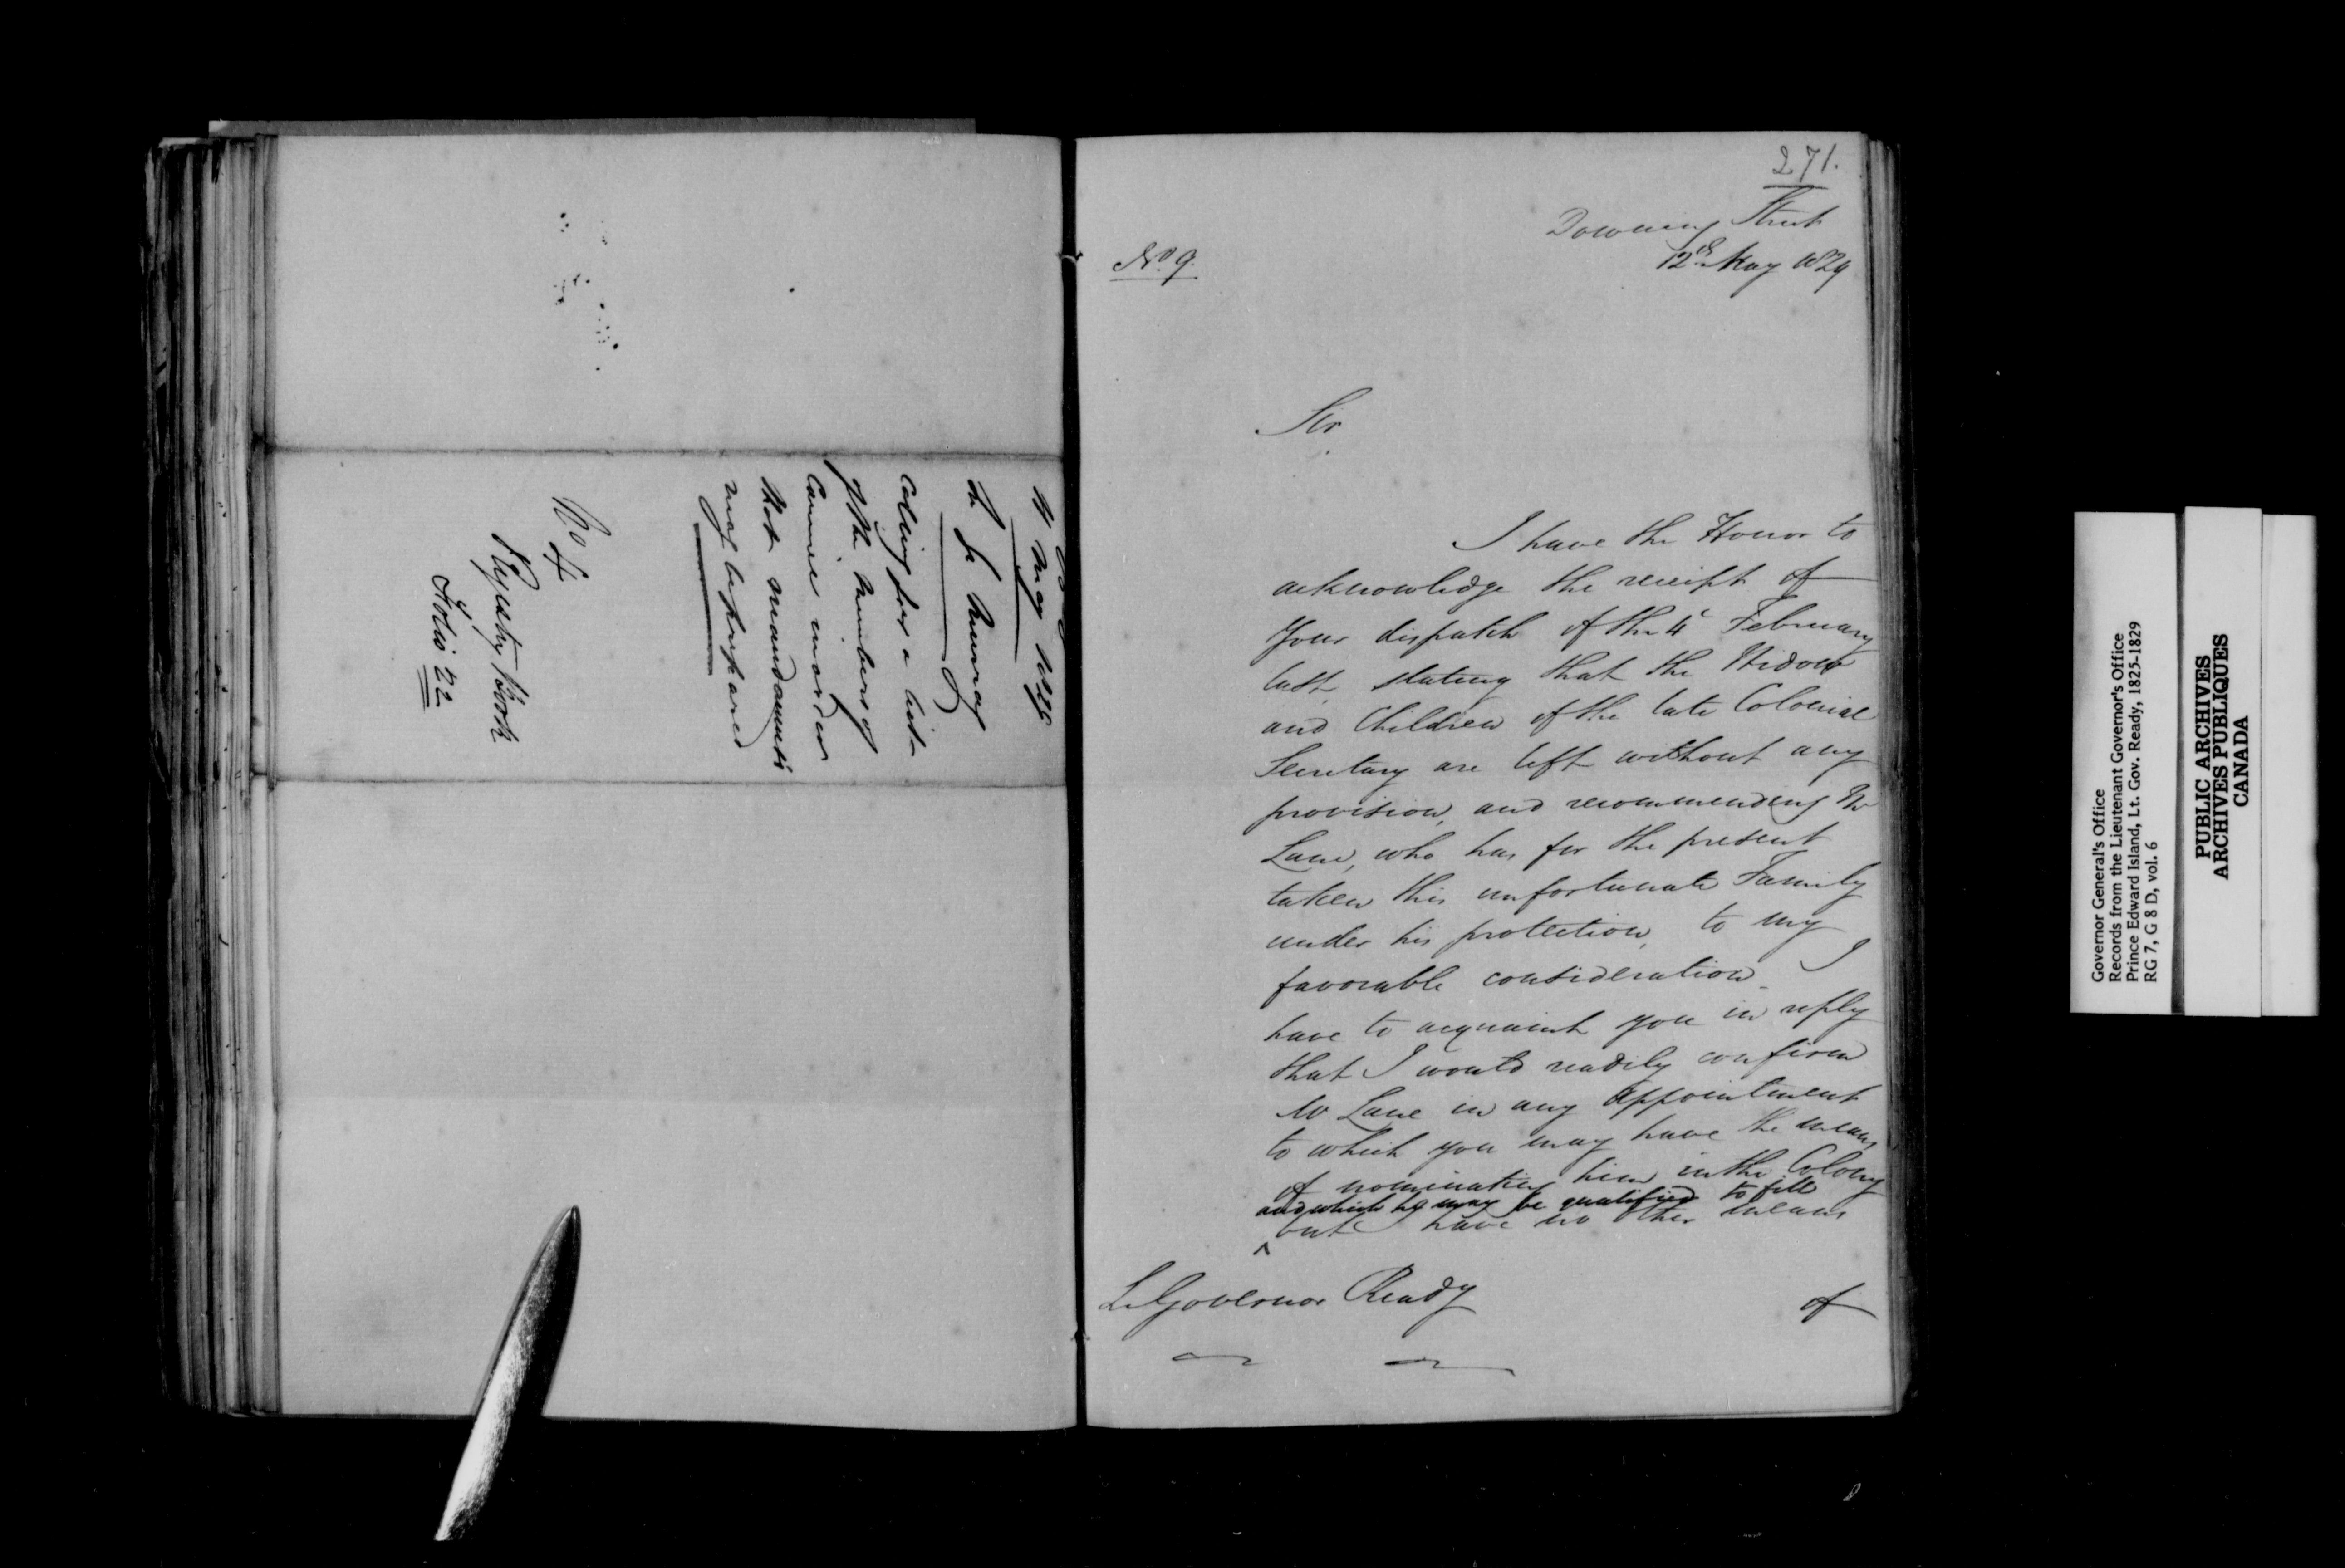 11 May 1829
Sir G. Murray
Calling for a list
of the Members of
Council in order
that mandamus's
may be prepared
No 4
Registry Book
Folio 22
271.
Downing Street
12th May 1829
No. 9.
Sir
I have the Honor to
acknowledge the receipt of
Your dispatch of the 4th February
last, stating that the Widow
and Children of the late Colonial
Secretary are left without any
provision, and recommending Mr
Lane, who has for the present
taken this unfortunate Family
under his protection, to my
favorable consideration. I
have to acquaint you in reply
that I would readily confirm
Mr Lane in any appointment
to which you may have the means
of nominating him in the Colony
and which he may be qualified to fill
but I have no other means
Lt Governor Ready
of
Governor General's Office
Records from the Lieutenant Governor's Office
Prince Edward Island, Lt. Gov. Ready, 1825-1829
RG 7, G 8 D, vol. 6
PUBLIC ARCHIVES
ARCHIVES PUBLIQUES
CANADA